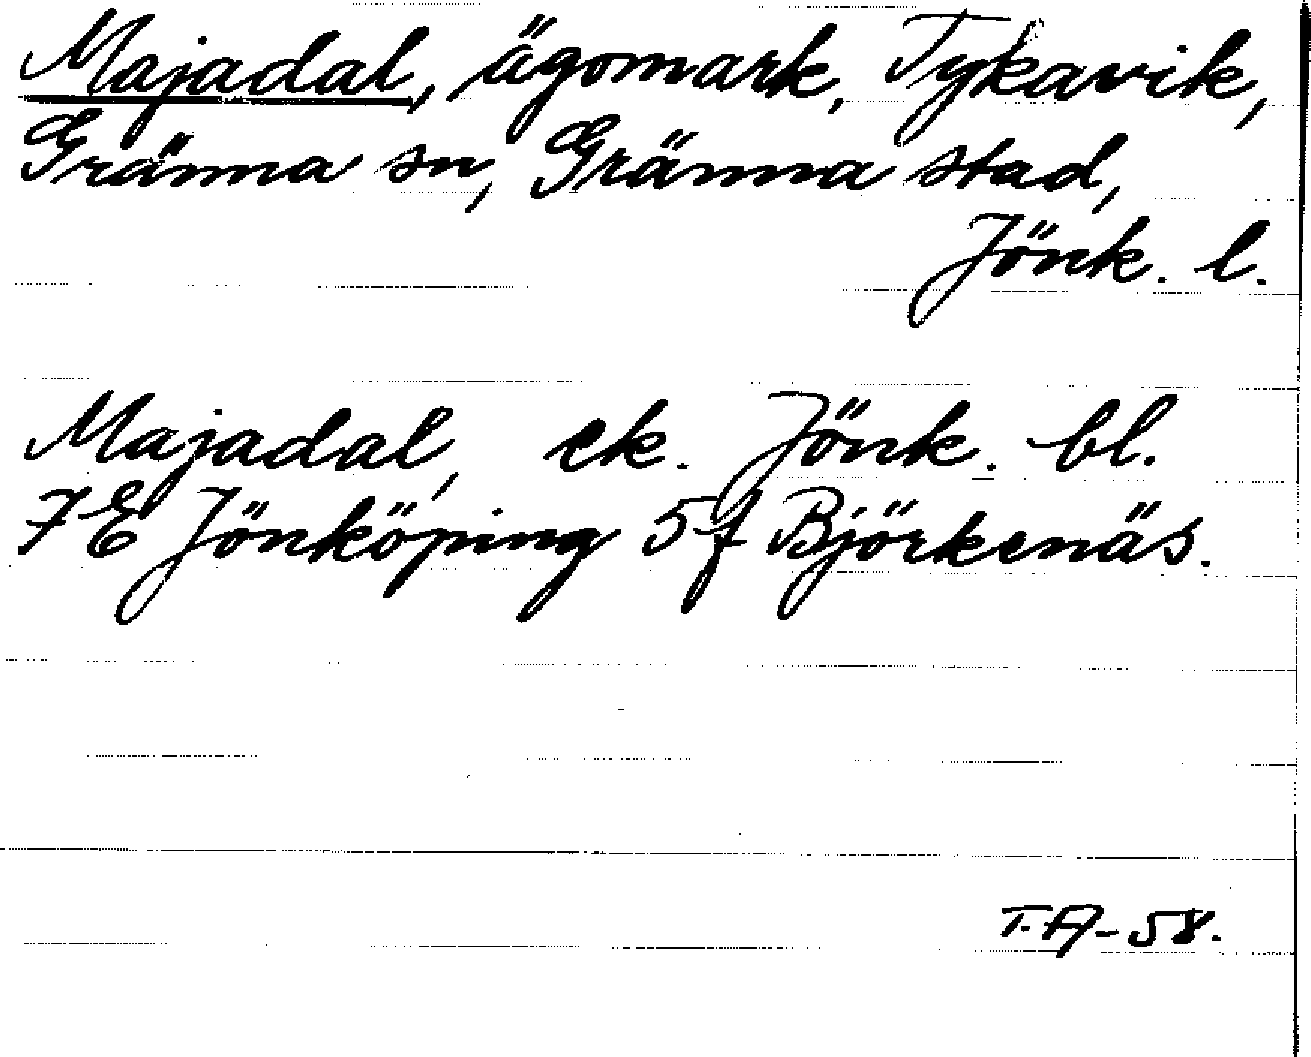 Majadal, ägomark, Tykavik,
Gränna sn, Gränna stad,
Jönk. l.
Majadal, ek. Jönk. bl.
7E Jönköping 5f Björkenäs.
T.A-58.